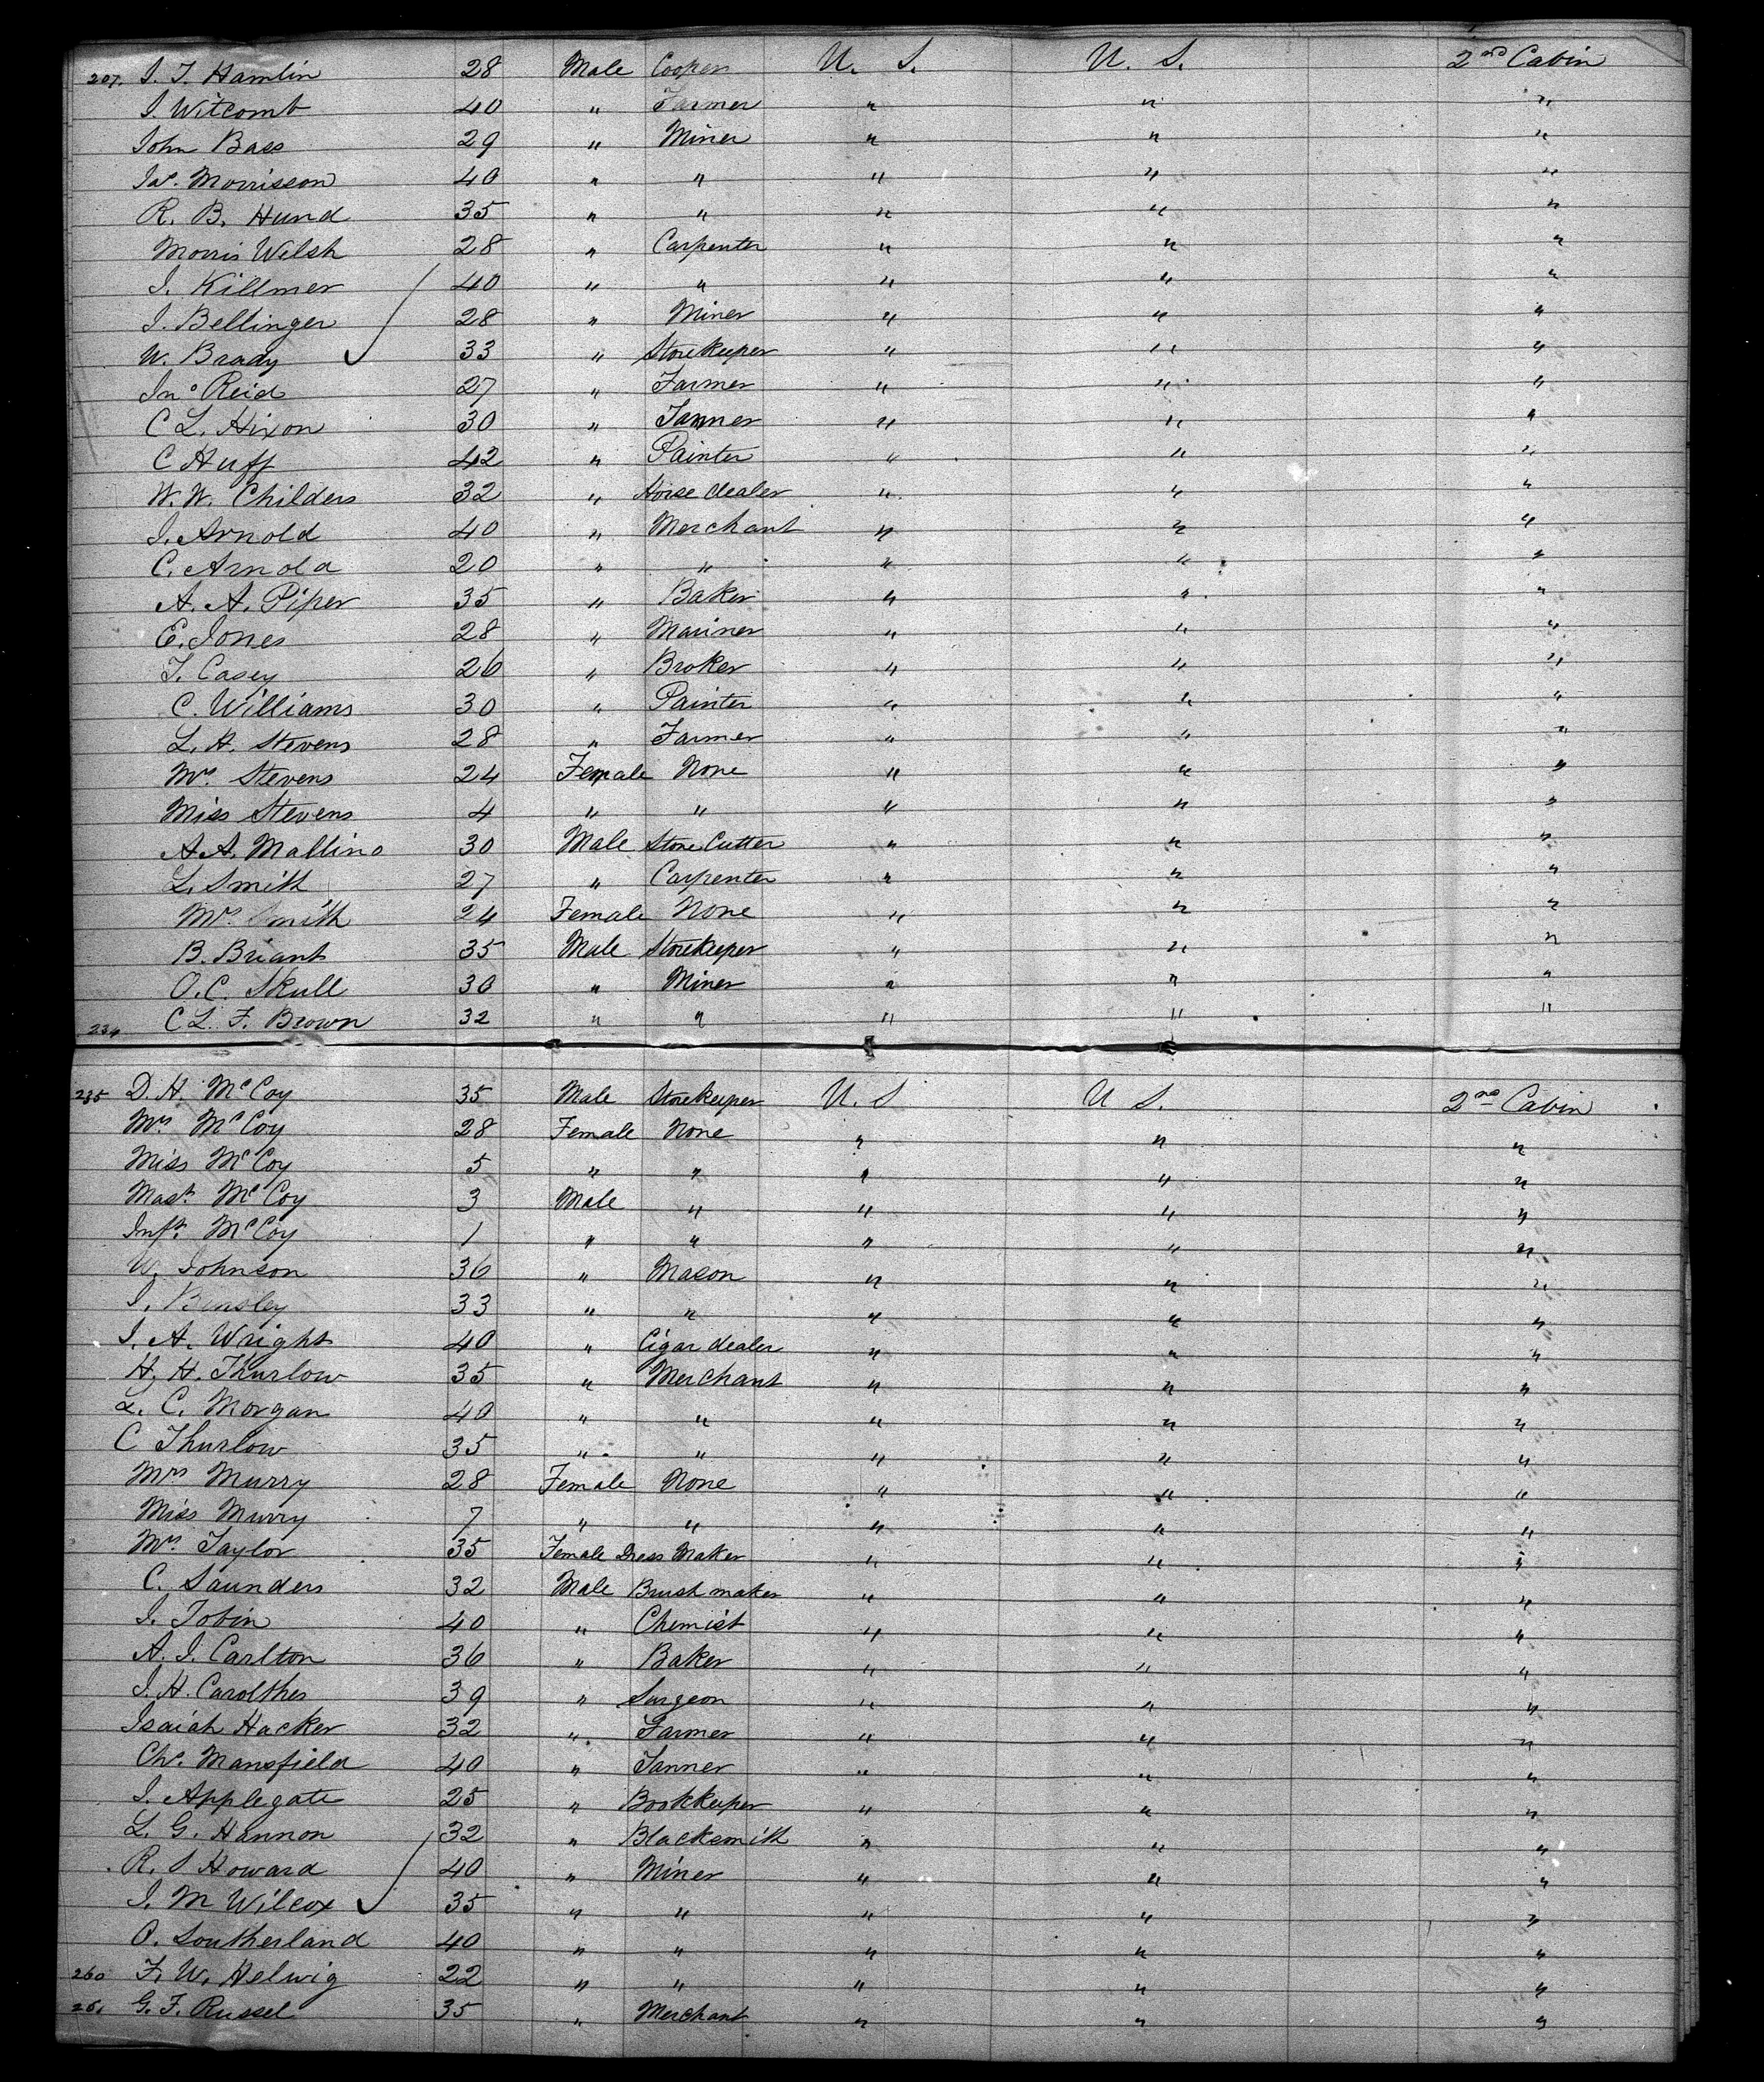 207. I. T. Hamlin 28 Male Cooper U. S. U. S. 2nd Cabin
I. Witcomb 40 " Farmer " " "
John Bass 29 " Miner " " "
Jas. Morrisson 40 " " " " "
R. B. Hund 35 " " " " "
Morris Welsh 28 " Carpenter " " "
I. Killmer 40 " " " " "
I. Bellinger 28 " Miner " " "
W. Brady 33 " Storekeeper " " "
Jno Reid 27 " Farmer " " "
C L. Hixon 30 " Tanner " " "
C Huff 42 " Painter " " "
W. W. Childers 32 " Horse dealer " " "
I. Arnold 40 " Merchant " " "
C. Arnold 20 " " " " "
A. A. Piper 35 " Baker " " "
E. Jones 28 " Mariner " " "
T. Casey 26 " Broker " " "
C. Williams 30 " Painter " " "
L. A. Stevens 28 " Farmer " " "
Mrs Stevens 24 Female None " " "
Miss Stevens 4 " " " " "
A. A. Mallino 30 Male Stone Cutter " " "
L. Smith 27 " Carpenter " " "
Mrs. Smith 24 Female None " " "
B. Briant 35 Male Storekeeper " " "
O. C. Skull 30 " Miner " " "
234 C L. F. Brown 32 " " " " "
235 D. H. McCoy 35 Male Storekeeper U. S U S. 2nd Cabin
Mrs McCoy 28 Female None " " "
Miss McCoy 5 " " " " "
Mast. McCoy 3 Male " " " "
Inft. McCoy 1 " " " " "
W. Johnson 36 " Mason " " "
I. Bensley 33 " " " " "
I. A. Wright 40 " Cigar dealer " " "
H. H. Thurlow 35 " Merchant " " "
L. C. Morgan 40 " " " " "
C Thurlow 35 " " " " "
Mrs Murry 28 Female None " " "
Miss Murry 7 " " " " "
Mrs. Taylor 35 Female Dress Maker " " "
C. Saunders 32 Male Brush maker " " "
I. Tobin 40 " Chemist " " "
A. I. Carlton 36 " Baker " " "
I. H. Carolthes 39 " Surgeon " " "
Isaiah Hacker 32 " Farmer " " "
Chs. Mansfield 40 " Tanner " " "
I. Applegate 25 " Bookkeeper " " "
L. G. Hannon 32 " Blacksmith " " "
R. S Howard 40 " Miner " " "
I. M Wilcox 35 " " " " "
O. Southerland 40 " " " " "
260 F. W. Helwig 22 " " " " "
261 G. F. Russel 35 " Merchant " " "